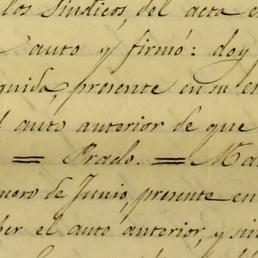 los Síndicos, del acta e
auto y firmó: doy
guida, presente en su
l auto anterior de que
= Prado. = Ma
nero de Junio, presente en
ber el auto anterior, y